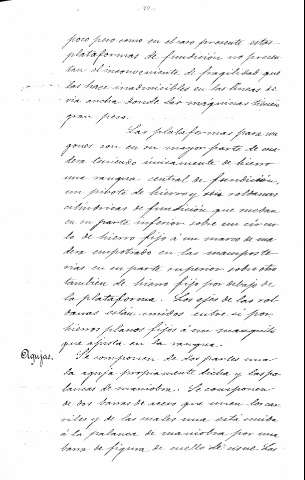 poco pero como en el caso presente estas
plataformas de fundición no presen-
tan el inconveniente de fragilidad que
las hace inadmisibles en las lineas de
via ancha donde las máquinas tienen
gran peso.
Las plataformas para va-
gones son en su mayor parte de ma-
dera teniendo únicamente de hierro
una rangua central de fundición,
un pivote de hierro y seis roldanas
cilíndricas de fundición que ruedan
en su parte inferior sobre un círcu-
lo de hierro fijo á un marco de ma-
dera empotrado en las mamposte-
rias en su parte superior sobre otro
también de hierro fijo por debajo de
la plataforma. Los ejes de las rol-
danas están unidos entre sí por
hierros planos fijos á un manguito
que ajusta en la rangua.
Agujas.
Se componen de dos partes una
la aguja propiamente dicha y las pa-
lancas de maniobra. Se componen
de dos barras de acero que unen los car-
riles y de las cuales una está unida
á la palanca de maniobra por una
barra de figura de cuello de cisne. Las